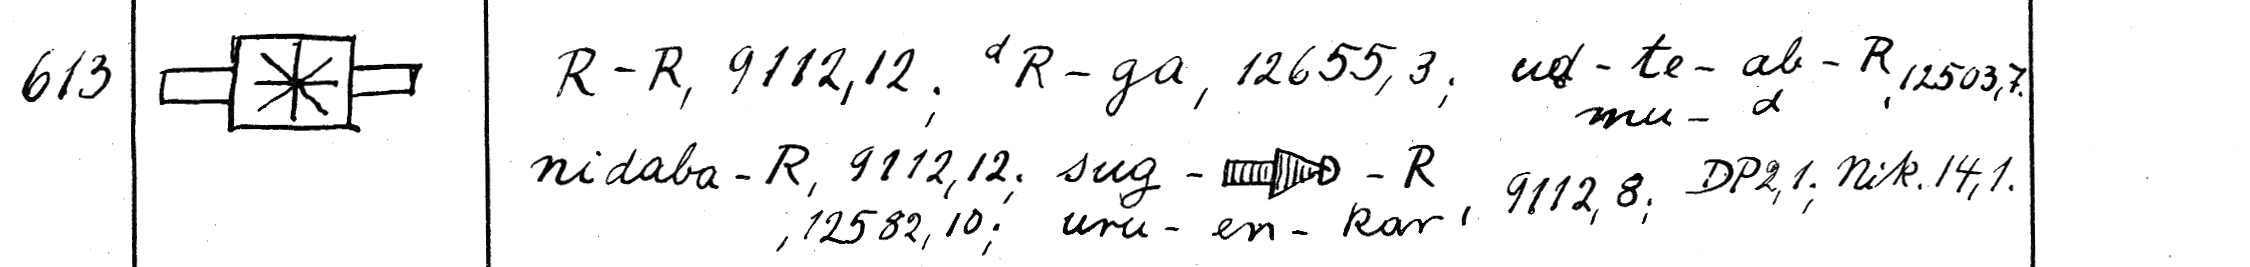 613 R-R, 9112,12; ᵈR-ga, 12655,3; ud-te-ab-R, 12503,7.
mu-d
nidaba-R, 9112,12; sug- -R, 9112,8; DP2,1; Nik. 14,1.
, 12582,10; uru-en-kar,